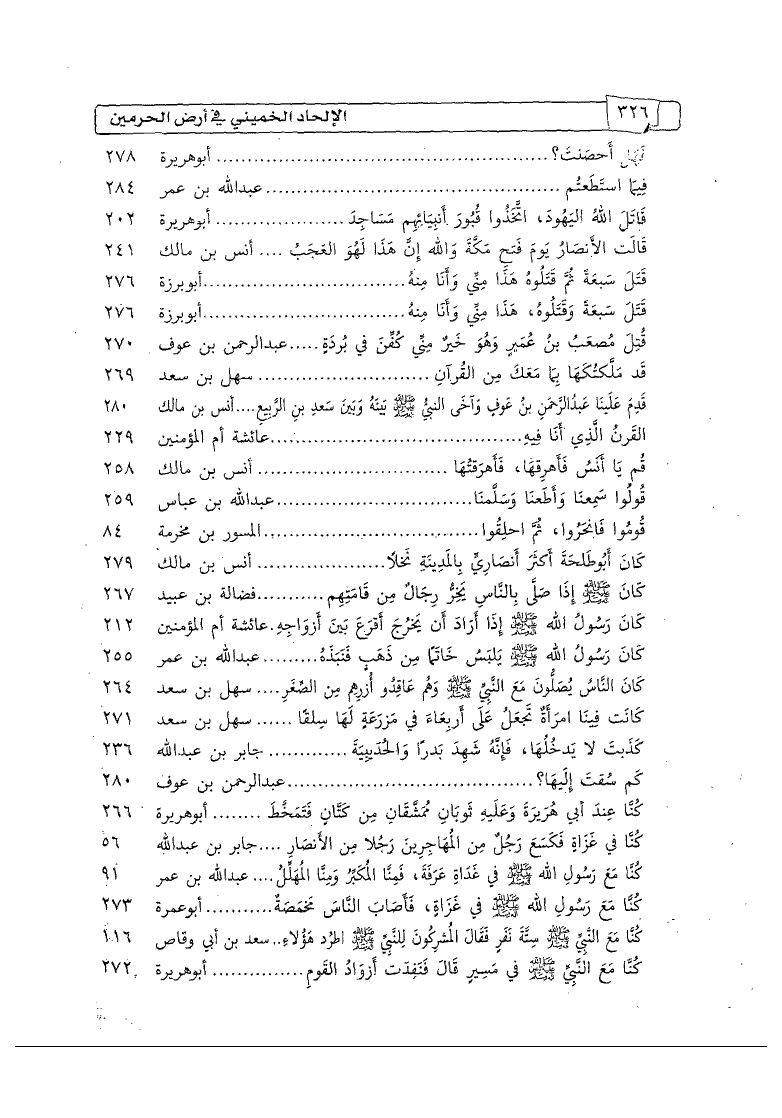 ٣٢٦ الإلحاد الخميني في أرض الحرمين
فَهَل أَحصَنتَ؟ ................ أبوهريرة ٢٧٨
فِيمَا استَطَعتُم ................ عبدالله بن عمر ٢٨٤
قَاتَلَ اللهُ اليَهُودَ، اتَّخَذُوا قُبُورَ أَنبِيَائِهِم مَسَاجِدَ ................ أبوهريرة ٢٠٢
قَالَت الأَنصَارُ يَومَ فَتحِ مَكَّةَ وَاللهِ إِنَّ هَذَا لَهُوَ العَجَبُ .... أنس بن مالك ٢٤١
قَتَلَ سَبعَةً ثُمَّ قَتَلُوهُ هَذَا مِنِّي وَأَنَا مِنهُ ................ أبوبرزة ٢٧٦
قَتَلَ سَبعَةً وَقَتَلُوهُ، هَذَا مِنِّي وَأَنَا مِنهُ ................ أبوبرزة ٢٧٦
قُتِلَ مُصعَبُ بنُ عُمَيرٍ وَهُوَ خَيرٌ مِنِّي كُفِّنَ في بُردَةٍ ..... عبدالرحمن بن عوف ٢٧٠
قَد مَلَّكتُكَهَا بِمَا مَعَكَ مِن القُرآنِ ................ سهل بن سعد ٢٦٩
قَدِمَ عَلَينَا عَبدُالرَّحمَنِ بنُ عَوفٍ وَآخَى النبيُّ ﷺ بَينَهُ وَبَينَ سَعدِ بنِ الرَّبِيعِ .... أنس بن مالك ٢٨٠
القَرنُ الَّذِي أَنَا فِيهِ ................ عائشة أم المؤمنين ٢٢٩
قُم يَا أَنَسُ فَأَهرِقهَا، فَأَهرَقتُهَا ................ أنس بن مالك ٢٥٨
قُولُوا سَمِعنَا وَأَطَعنَا وَسَلَّمنَا ................ عبدالله بن عباس ٢٥٩
قُومُوا فَانحَرُوا، ثُمَّ احلِقُوا ................ المسور بن مخرمة ٨٤
كَانَ أَبُوطَلحَةَ أَكثَرَ أَنصَارِيٍّ بِالمَدِينَةِ نَخلًا ................ أنس بن مالك ٢٧٩
كَانَ ﷺ إِذَا صَلَّى بِالنَّاسِ يَخِرُّ رِجَالٌ مِن قَامَتِهِم ........... فضالة بن عبيد ٢٦٧
كَانَ رَسُولُ اللهِ ﷺ إِذَا أَرَادَ أَن يَخرُجَ أَقرَعَ بَينَ أَزوَاجِهِ. عائشة أم المؤمنين ٢١٢
كَانَ رَسُولُ اللهِ ﷺ يَلبَسُ خَاتَمًا مِن ذَهَبٍ فَنَبَذَهُ ......... عبدالله بن عمر ٢٥٥
كَانَ النَّاسُ يُصَلُّونَ مَعَ النَّبِيِّ ﷺ وَهُم عَاقِدُو أُزرِهِم مِن الصِّغَرِ .... سهل بن سعد ٢٦٤
كَانَت فِينَا امرَأَةٌ تَجعَلُ عَلَى أَربِعَاءَ في مَزرَعَةٍ لَهَا سِلقًا ...... سهل بن سعد ٢٧١
كَذَبتَ لا يَدخُلُهَا، فَإِنَّهُ شَهِدَ بَدرًا وَالحُدَيبِيَةَ ............. جابر بن عبدالله ٢٣٦
كَم سُقتَ إِلَيهَا؟ ................ عبدالرحمن بن عوف ٢٨٠
كُنَّا عِندَ أَبي هُرَيرَةَ وَعَلَيهِ ثَوبَانِ مُمَشَّقَانِ مِن كَتَّانٍ فَتَمَخَّطَ ........ أبوهريرة ٢٦٦
كُنَّا في غَزَاةٍ فَكَسَعَ رَجُلٌ مِن المُهَاجِرِينَ رَجُلًا مِن الأَنصَارِ .... جابر بن عبدالله ٥٦
كُنَّا مَعَ رَسُولِ اللهِ ﷺ في غَدَاةِ عَرَفَةَ، فَمِنَّا المُكَبِّرُ وَمِنَّا المُهَلِّلُ .... عبدالله بن عمر ٩١
كُنَّا مَعَ رَسُولِ اللهِ ﷺ في غَزَاةٍ، فَأَصَابَ النَّاسَ مَخمَصَةٌ ........... أبوعمرة ٢٧٣
كُنَّا مَعَ النَّبيِّ ﷺ سِتَّةَ نَفَرٍ فَقَالَ المُشرِكُونَ لِلنَّبيِّ ﷺ اطرُد هَؤُلاءِ .. سعد بن أبي وقاص ١١٦
كُنَّا مَعَ النَّبيِّ ﷺ في مَسِيرٍ قَالَ فَنَفِدَت أَزوَادُ القَومِ ............... أبوهريرة ٢٧٢